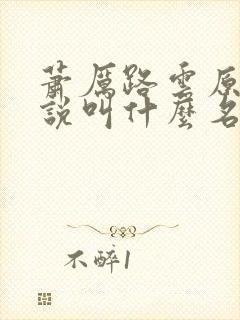 蕭厲路雲原
說叫什麼名
不醉1